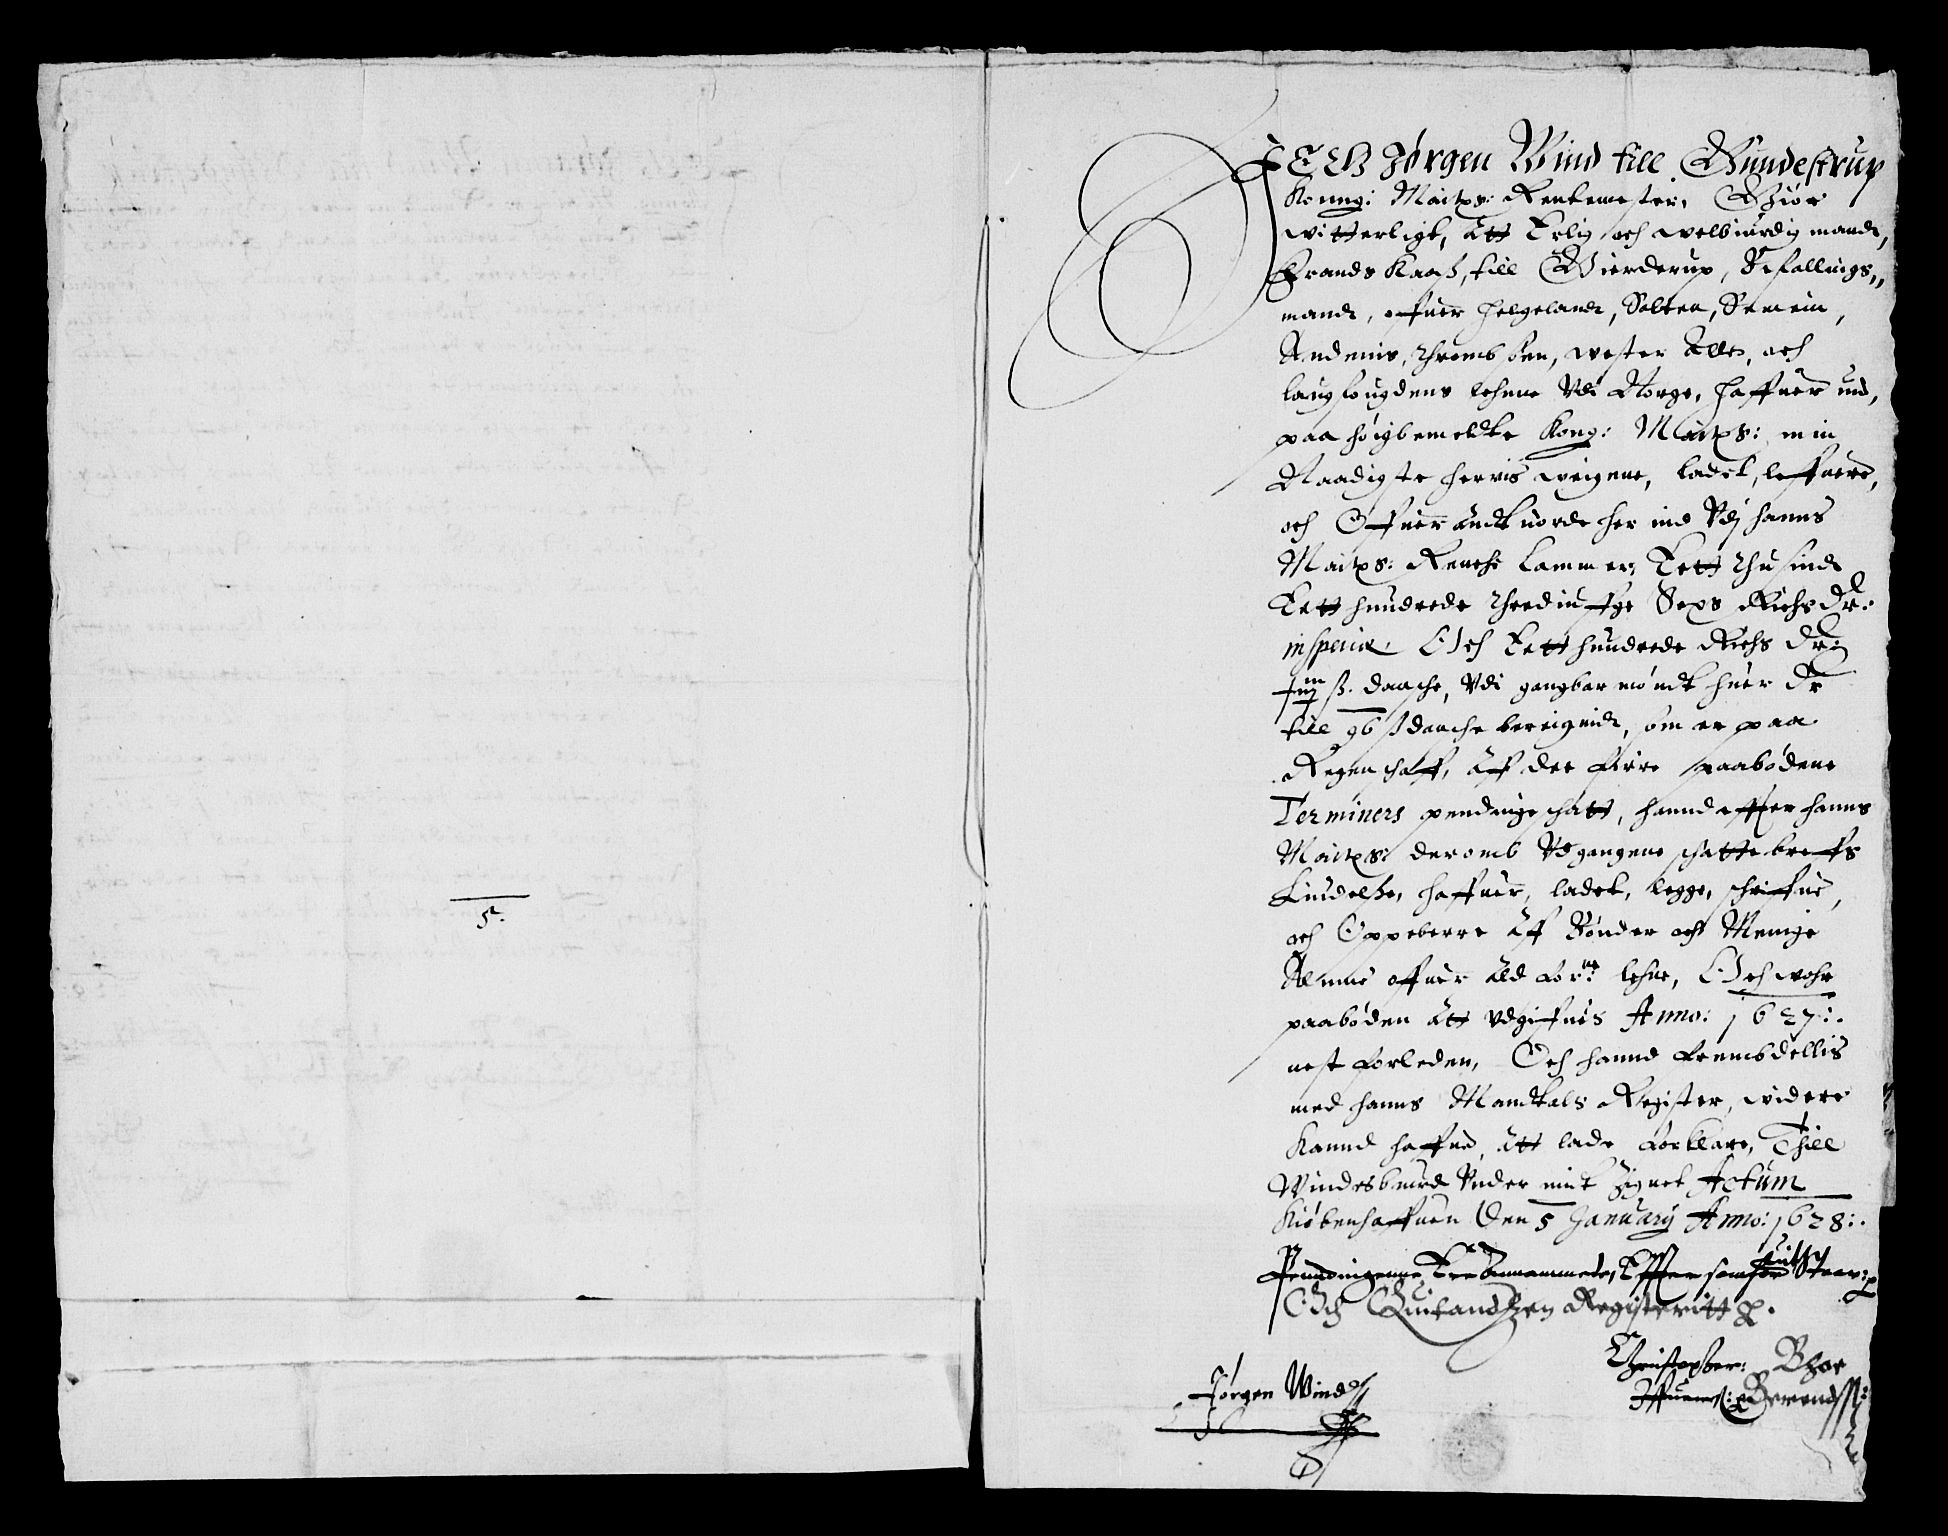 5.
JEG Jørgen Wind till Gundestrup
Konng: Maitts: Rentemester, Giør
witterligt, att Erlig och welbiurdig mandt,
Frands Kaaß, till Gierderup, Befallings„
mandt, offuer Helgelandt, Salten, Semein,
Andenis, Thromb søen, wester Alle, och
laugfougdens lehnne Vdi Norge, haffuer nu,
paa høigbemelte Kong: Maitts: min
Naadigste herris weigne, ladet, leffuere,
och Offuer andtuorde her ind Vdj hanns
Maitts: Renthe Cammer, Eett thusindt
Eett hundrede thrediuffge Sex Richs dr.
inspecie Och Eett hundrede Richs dr:
ß. danske, Vdi gangbar møndt huer dr
till 96 ß danske bereignidt, som er paa
Regenschaff, aff dee fiire paabødene
Terminers pendinge schatt, hannd effter hanns
Maitts: deromb Vdgangene schatte breffs
Liudelße, haffuer, ladet, legge, schriffue,
och Oppeberre aff Bønder och Menige
Almue offuer alld forne: lehne, Och wohr
paabøden att vdgiffuis Anno: 1627:.
nest forleden, Och hannd frembdellis
med hanns Mandtals Register, widere
kannd haffue att lade forklare, Thill
Windesbiurd Vnder mit Zignet Actum
Kiøbenhaffuen Den 5 January Anno: 1628:.
Penndingenne Ere Annammede, Effter som for
Och Quitandtzen Registeritt
Christopher: Bhoe
Jørgen Wind